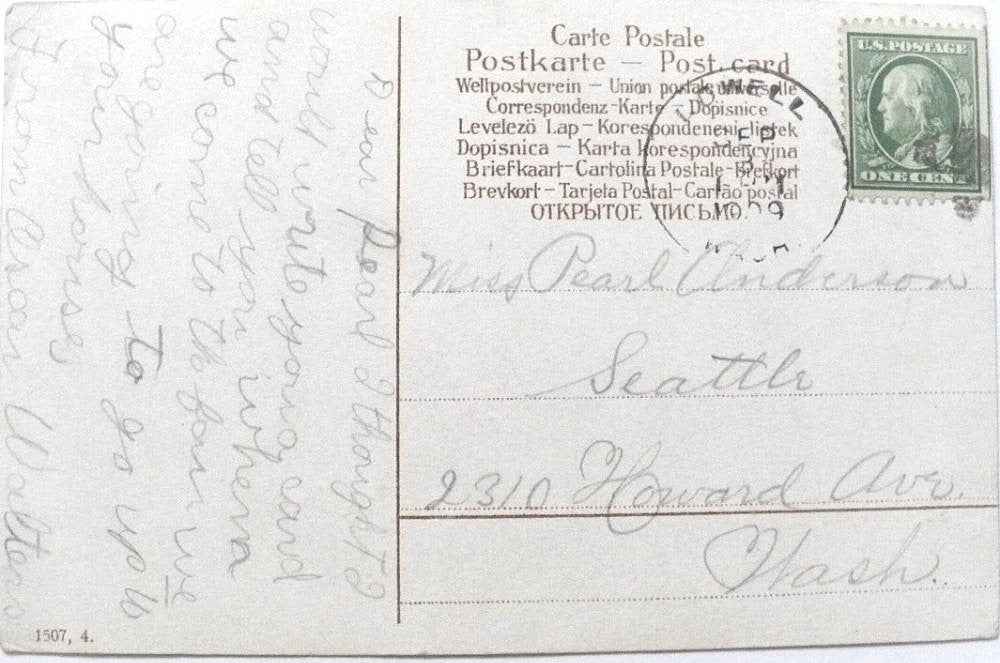 Dear Pearl I thought I
would write you a card
and tell you when
we come to the fair we
are going to go up to
your house
From Oscar Walters
1507, 4.
Carte Postale
Postkarte — Post card
Weltpostverein — Union postale universelle
Correspondenz-Karte — Dopisnice
Levelező Lap — Korespondenční lístek
Dopisnica — Karta korespondencyjna
Briefkaart — Cartolina Postale — Brefkort
Brevkort — Tarjeta Postal — Cartão postal
ОТКРЫТОЕ ПИСЬМО.
U.S. POSTAGE
ONE CENT
LOWELL
SEP
1909
WASH
Miss Pearl Anderson
Seattle
2310 Howard Ave.
Wash.